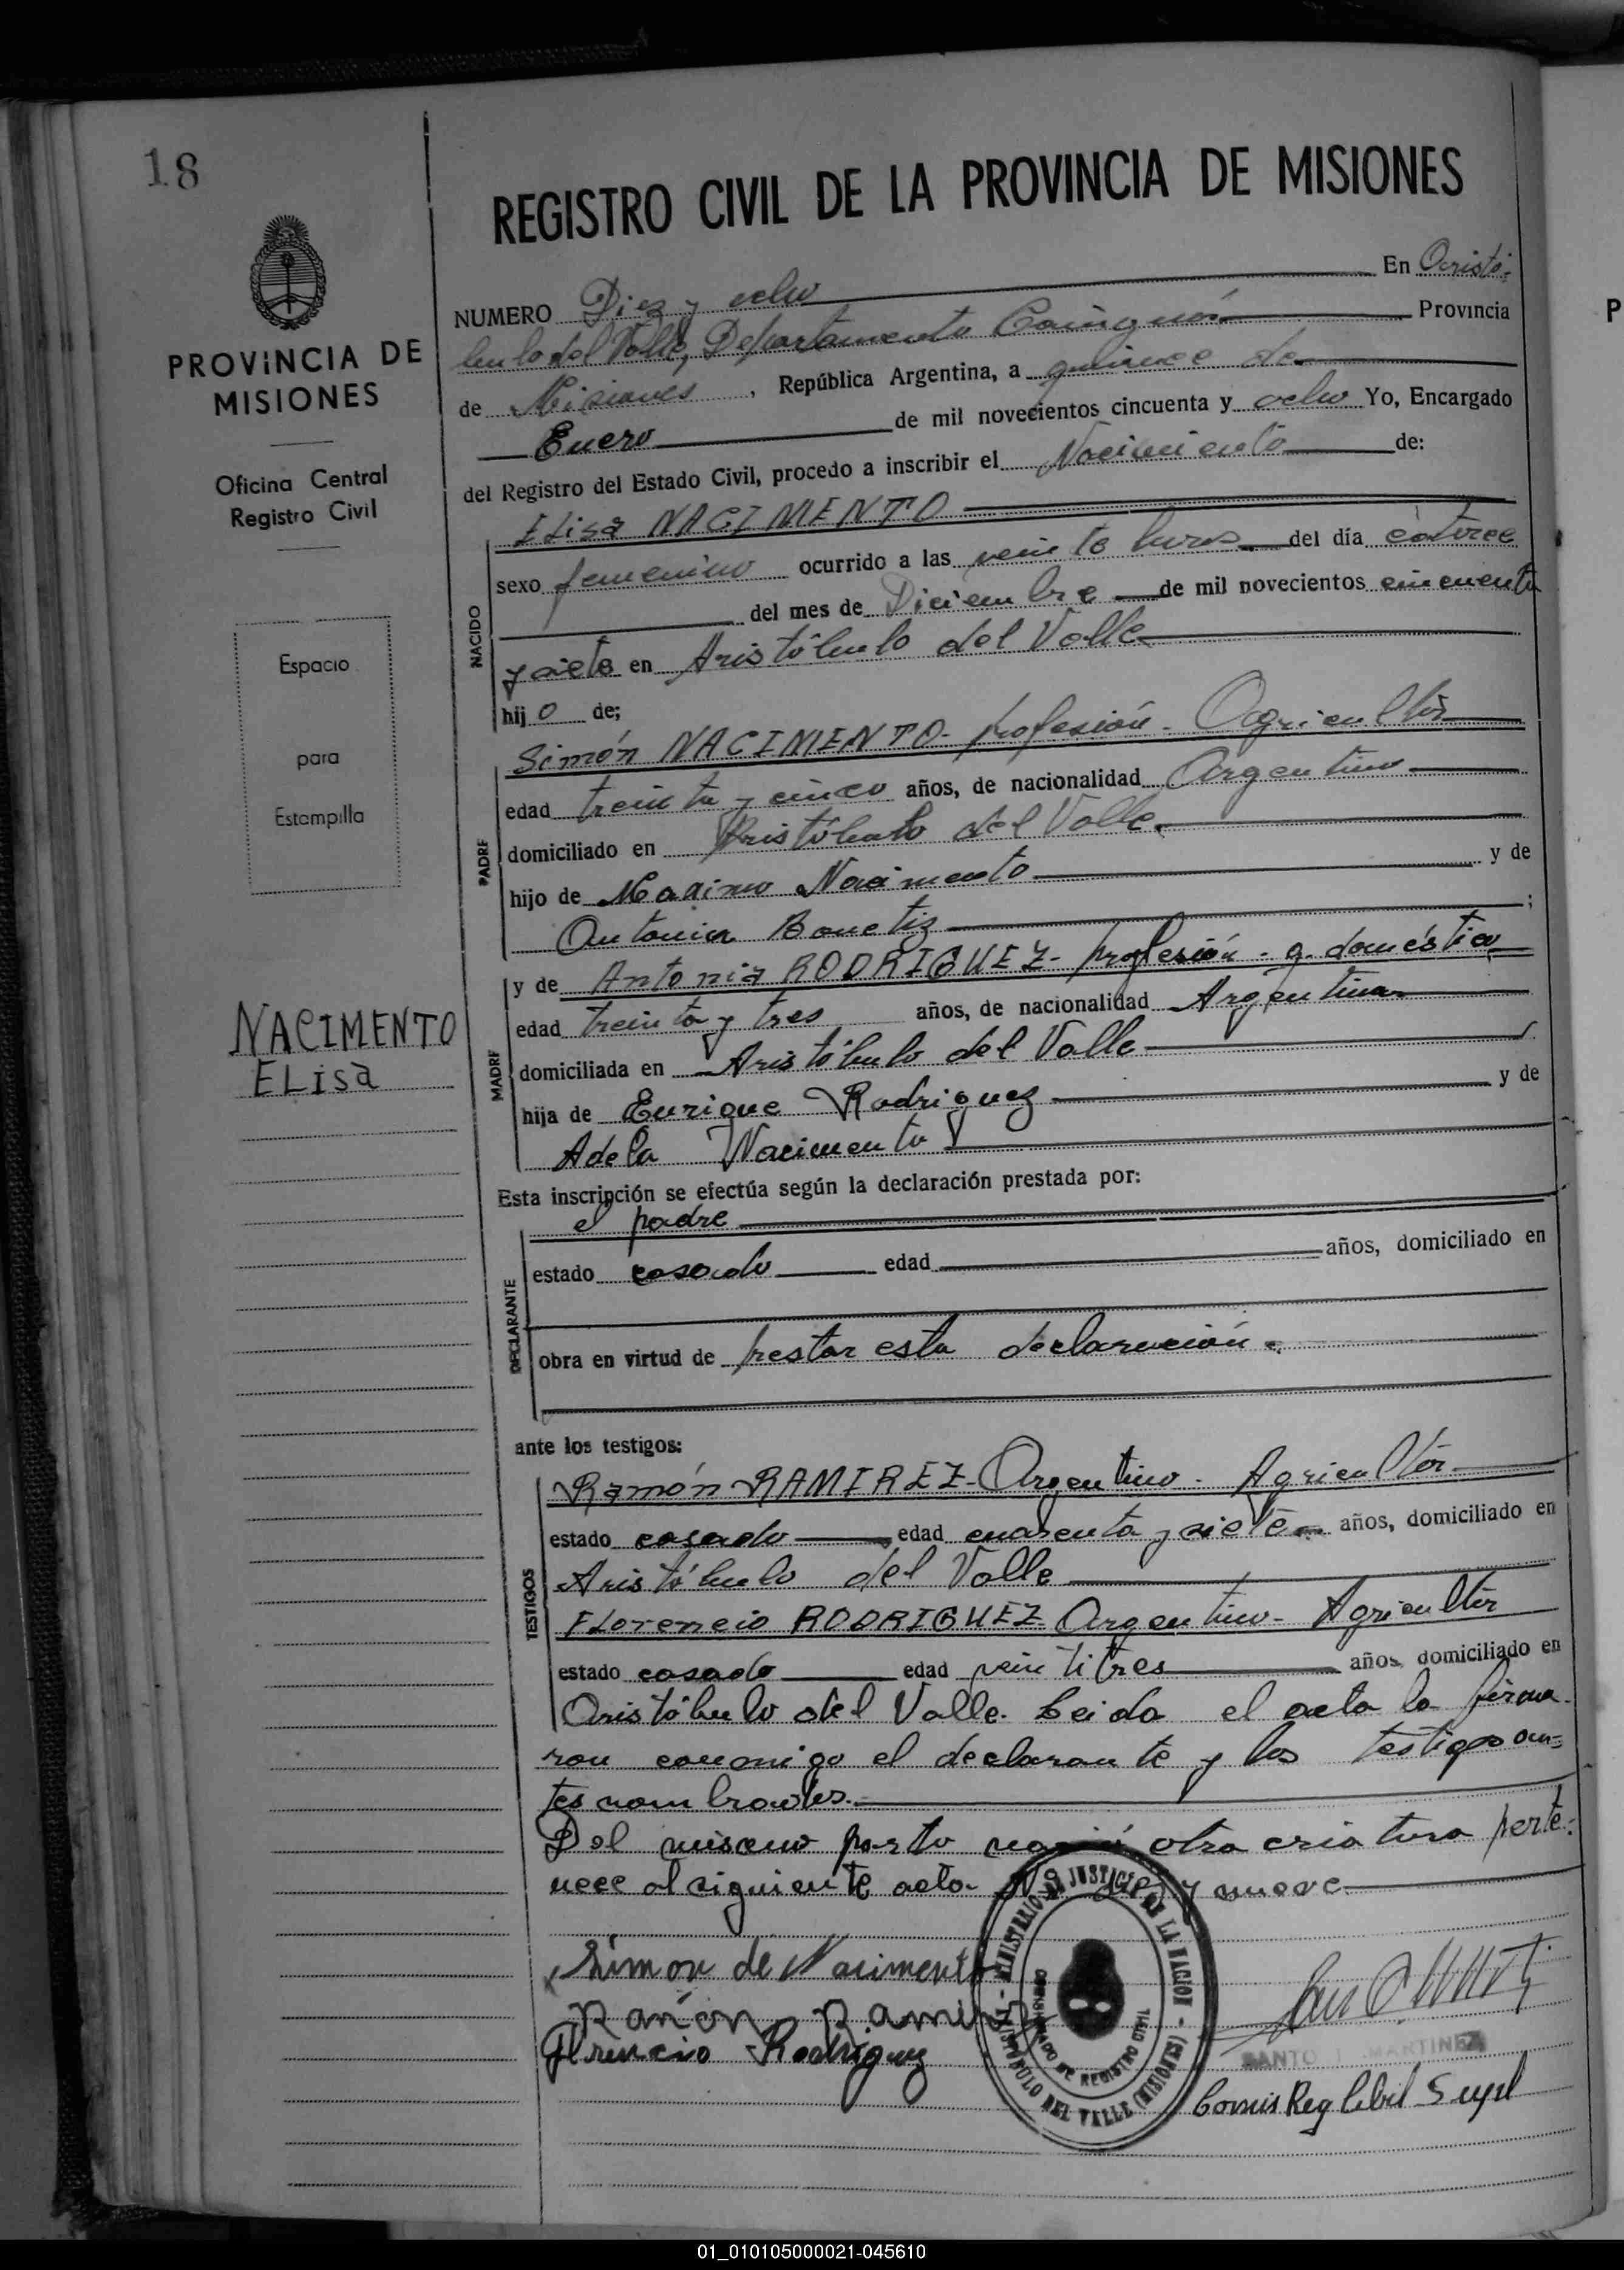 18
REGISTRO CIVIL DE LA PROVINCIA DE MISIONES
PROVINCIA DE
MISIONES
Oficina Central
Registro Civil
Espacio
para
Estampilla
NACIMENTO
ELisa
NUMERO Diez y ocho En Aristó-
bulo del Valle, Departamento Cainguás Provincia
de Misiones, República Argentina, a quince de
Enero de mil novecientos cincuenta y ocho Yo, Encargado
del Registro del Estado Civil, procedo a inscribir el Nacimiento de:
NACIDO
ELisa NACIMENTO
sexo femenino ocurrido a las veinte horas del día catorce
del mes de Diciembre de mil novecientos cincuenta
y siete en Aristóbulo del Valle
hij o de;
PADRE
Simón NACIMENTO- profesión - Agricultór
edad treinta y cinco años, de nacionalidad Argentino
domiciliado en Aristóbulo del Valle.
hijo de Maximo Nacimento y de
Antonia Bonetiz ;
MADRE
y de Antonia RODRIGUEZ- profesión - q. doméstico
edad treinta y tres años, de nacionalidad Argentina
domiciliada en Aristóbulo del Valle
hija de Enrique Rodriguez y de
Adela Nacimento
Esta inscripción se efectúa según la declaración prestada por:
DECLARANTE
el padre
estado casado edad años, domiciliado en
obra en virtud de prestar esta declaración.
ante los testigos:
TESTIGOS
Ramón RAMIREZ- Argentino - Agricultór
estado casado edad cuarenta y siete años, domiciliado en
Aristóbulo del Valle
FLorencio RODRIGUEZ- Argentino- Agricultór
estado casado edad veintitres años, domiciliado en
Aristóbulo del Valle. Leida el acta la firma-
ron conmigo el declarante y los testigos an-
tes nombrados.
Del mismo parto nació otra criatura perte-
nece al siguiente acta Nº diez y nueve
Simon de Nacimento
Ramon Ramirez
Florencio Rodriguez
MINISTERIO DE JUSTICIA DE LA NACION - ARISTOBULO DEL VALLE (MISIONES)
COMISIONADO DE REGISTRO CIVIL
SANTO MARTINEZ
Comis Reg Cibil Supl
01_010105000021-045610